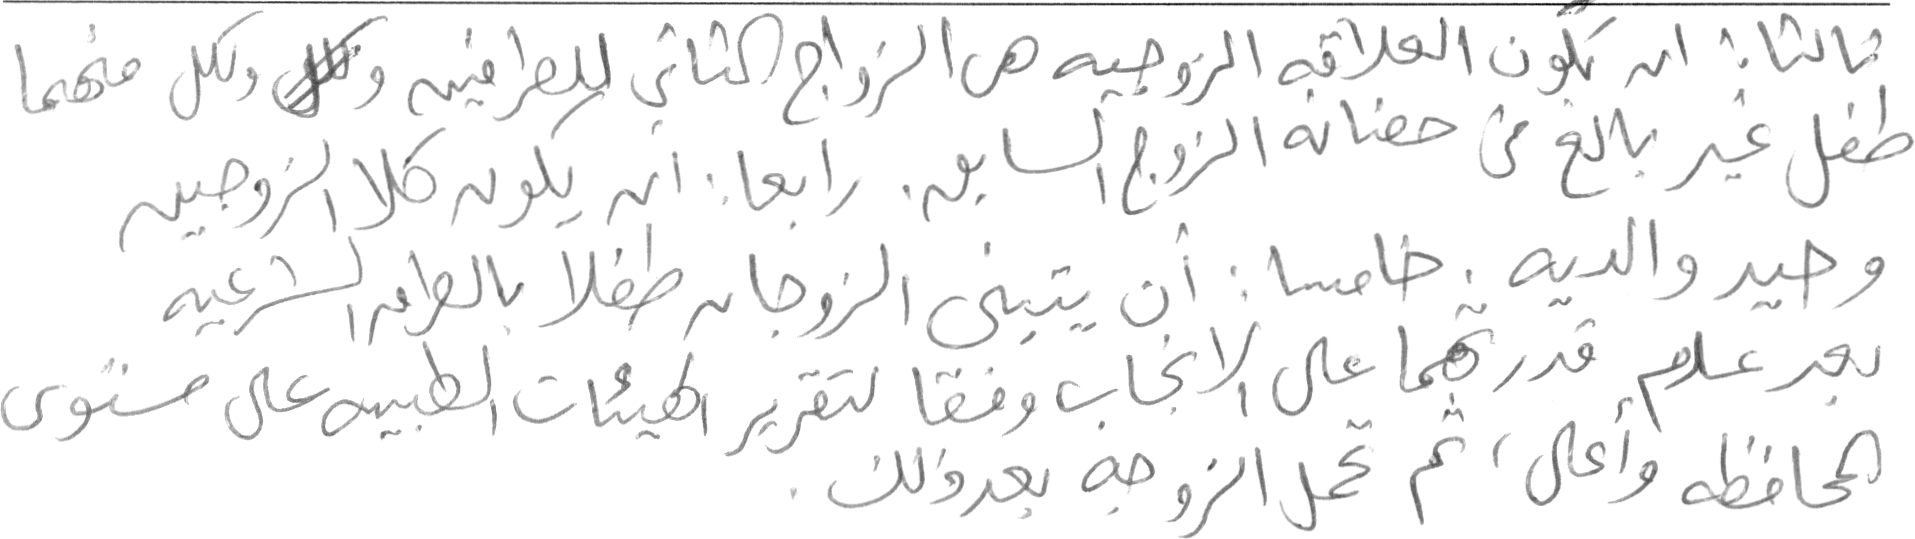 ثالثا: ان تكون العلاقه الزوجيه هى الزواج الثانى للطرفين ولكل منهما
طفل غير بالغ فى حضانه الزوج السابق. رابعا: ان يكون كلا الزوجين
وحيد والديه. خامسا: أن يتبنى الزوجان طفلا بالطرق الشرعيه
بعد علام قدرتهما على الانجاب وفقا لتقرير الهيئات الطبيه على مستوى
المحافظه وأعلى، ثم تحمل الزوجه بعد ذلك.